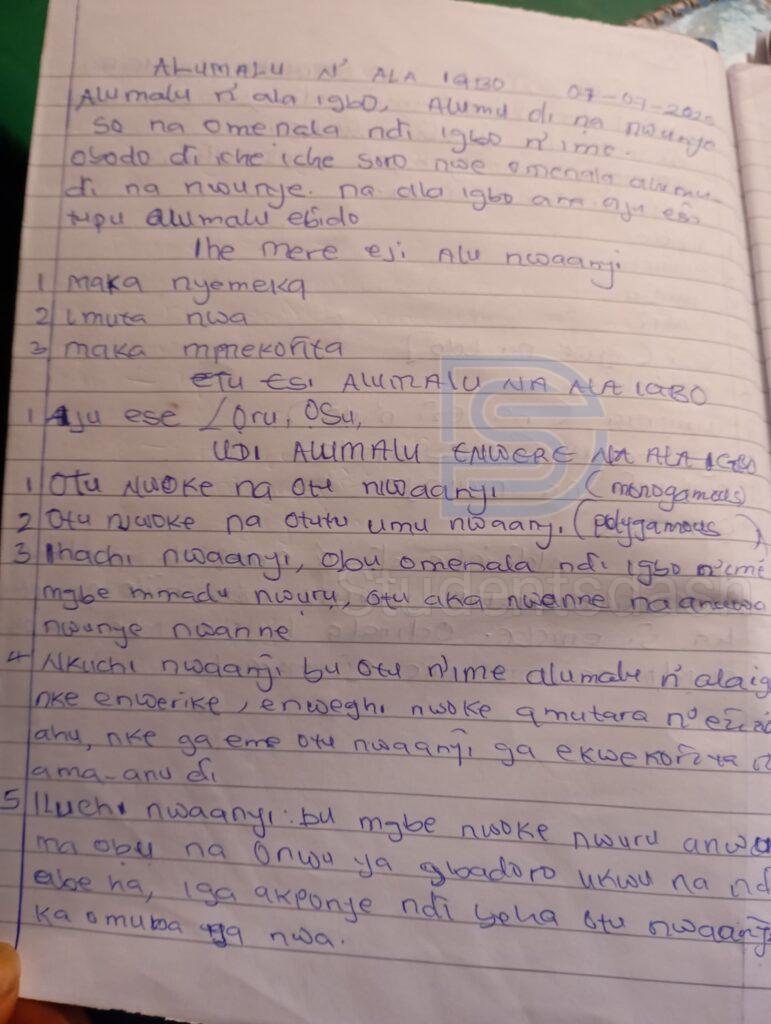 ALUMALU N' ALA IGBO 07-07-2020
Alumalu n' ala igbo, Alumu di na nwunye
so na omenala ndi igbo n'ime.
obodo di iche iche soro nwe omenala alumu-
di na nwunye. na ala igbo ana aju ese
tupu alumalu ebido
Ihe mere eji Alu nwaanyi
1 maka nyemeka
2 Imuta nwa
3 maka mmekorita
ETU ESI ALUMALU NA ALA IGBO
1 Aju ese / Oru, Osu,
UDI ALUMALU ENWERE NA ALA IGBO
1 Otu Nwoke na otu nwaanyi (monogamous)
2 Otu nwoke na otutu umu nwaanyi (polygamous)
3 Ihachi nwaanyi, obu omenala ndi igbo n'ime
mgbe mmadu nwuru, otu aka nwanne na
nwunye nwanne
4 Nkuchi nwaanyi bu otu n'ime alumalu n' ala ig
nke enwerike, enweghi nwoke amutara n'ezi
ahu, nke ga eme otu nwaanyi ga ekwekorita
ama-anu di
5 Iluchi nwaanyi: bu mgbe nwoke nwuru
ma obu na Onwu ya gbadoro ukwu na nd
ebe ha, iga akponye ndi beha otu nwaanyi
ka omuba nwa.
Studentsdash